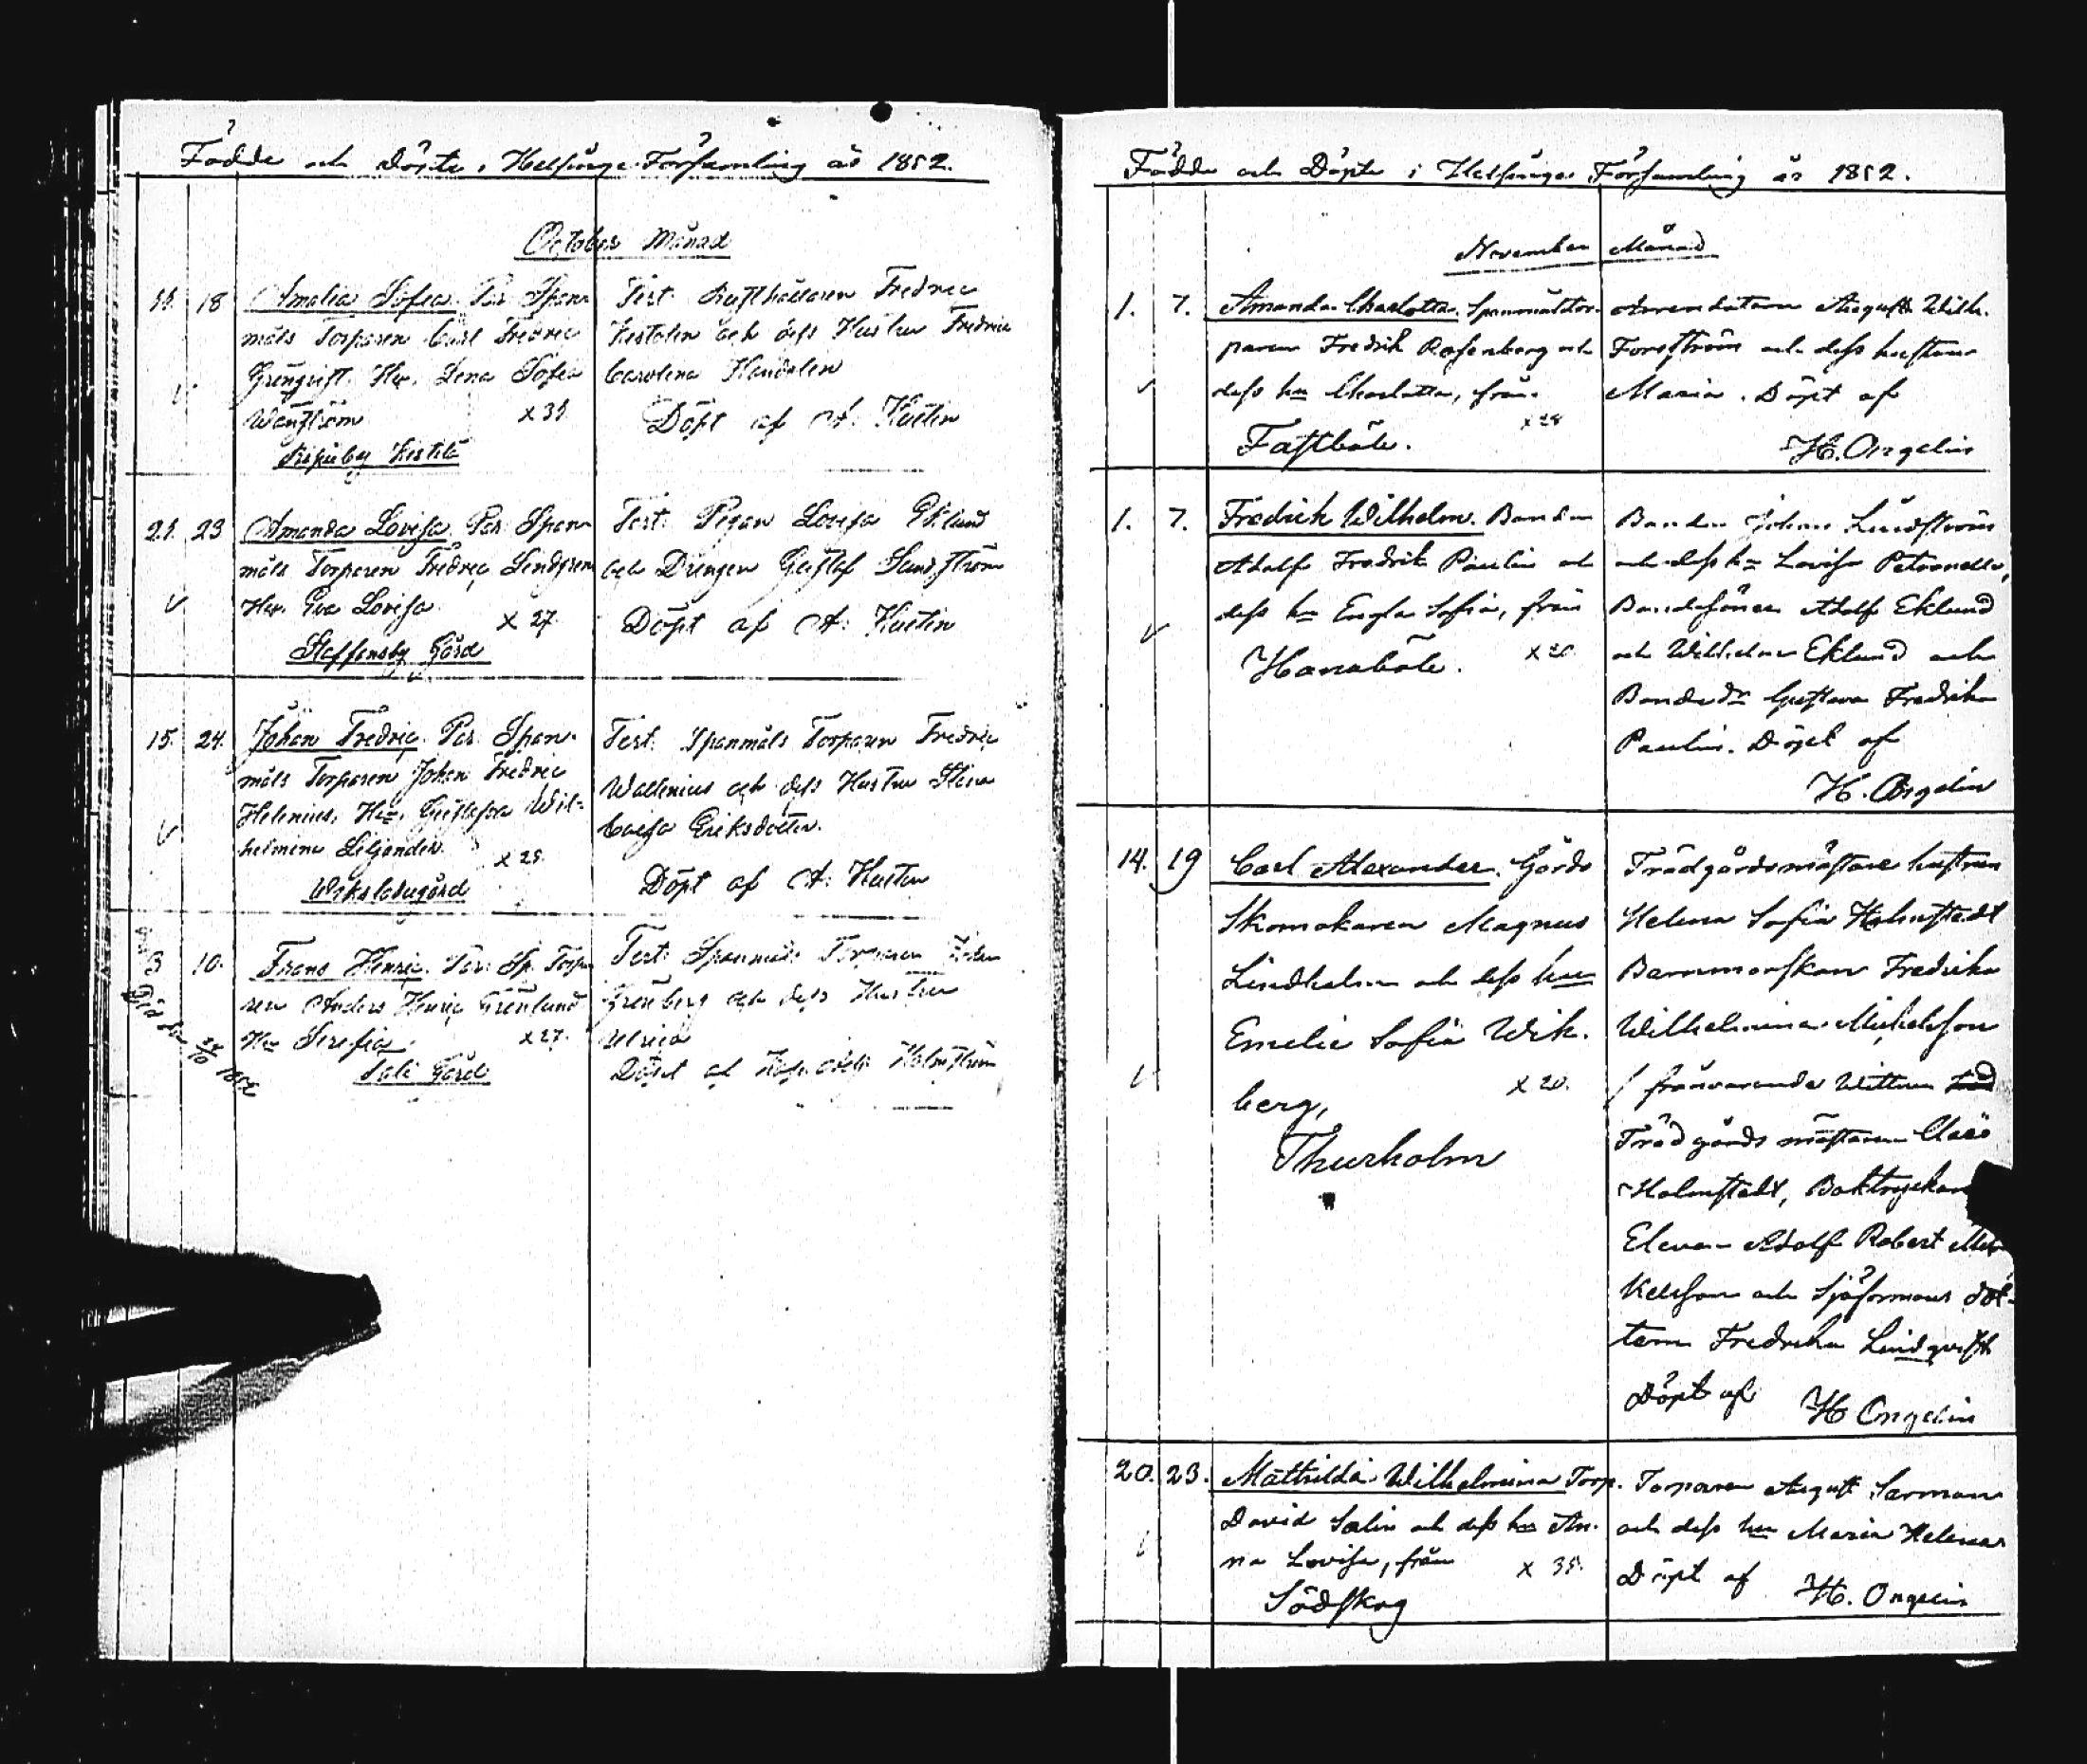 Födde och Döpte i Helsinge Församling år 1852.
October Månad
18 Amalia Sofia. Par: Span-
måls Torparen Carl Fredric
Hu. Lena Sofia
Wenström x 35
Test: Rusthållaren Fredric
och dess Hustru Fredrica
Carolina
Döpt af A: Hustin
21. 23 Amanda Lovisa. Par: Span-
måls Torparen Fredric Lindgren
Hu. Eva Lovisa x 27.
Staffansby Gård
Test: Pigan Lovisa Eklund
och Drengen Gustaf Sandström
Döpt af A: Hustin
15. 24. Johan Fredric. Par. Span-
måls Torparen Johan Fredric
Helenius, Hu. Gustafva Wil-
helmina Liljander. x 25.
Wiks ladugård
Test: Spanmåls Torparen Fredric
Wallenius och dess Hustru Stina
Caisa Eriksdotter.
Döpt af A: Hustin
3 10. Frans Henric. Par: Sp. Torpa-
ren Anders Henric Grönlund
Hu Serafia. x 27.
Gård
Test: Spanmåls Torparen
Grönberg och dess Hustru
Ulrica
Döpt af Holmström
1852
Födde och Döpte i Helsinge Församling år 1852.
November Månad
1. 7. Amanda Charlotta. Spanmåltor-
paren Fredrik Rosenberg och
dess hu Charlotta, från
Fastböle. x 28
Arrendatorn August Wilh.
Forsström och dess hustru
Maria. Döpt af
H. Ongelin
1. 7. Fredrik Wilhelm. Bonden
Adolf Fredrik Paulin och
dess hu Engla Sofia, från
Hanaböle. x 20.
Bonden Johan Lindström
och dess hu Lovisa Petronella,
Bondesönen Adolf Eklund
och Wilhelm Eklund och
Bonded:r Gustava Fredrika
Paulin. Döpt af
H. Ongelin
14. 19 Carl Alexander. Gårds
Skomakaren Magnus
Lindholm och dess hu
Emelie Sofia Wik-
berg, x 20.
Thurholm
Trädgårdsmästare hustrun
Helena Sofia Holmstedt
Barnmorskan Fredrika
Wilhelmina Mickelsson
frånvarande Wittnen
Trädgårdsmästaren
Holmstedt, Boktryckare
Eleven Adolf Robert Mic-
kelsson och Sjöformans dot-
tern Fredrika Lindqvist
Döpt af H Ongelin
20. 23. Mathilda Wilhelmina Torp.
David Salin och dess hu An-
na Lovisa, från x 35.
Södskog
Torparen August Sarman
och dess hu Maria Helena
Döpt af H. Ongelin